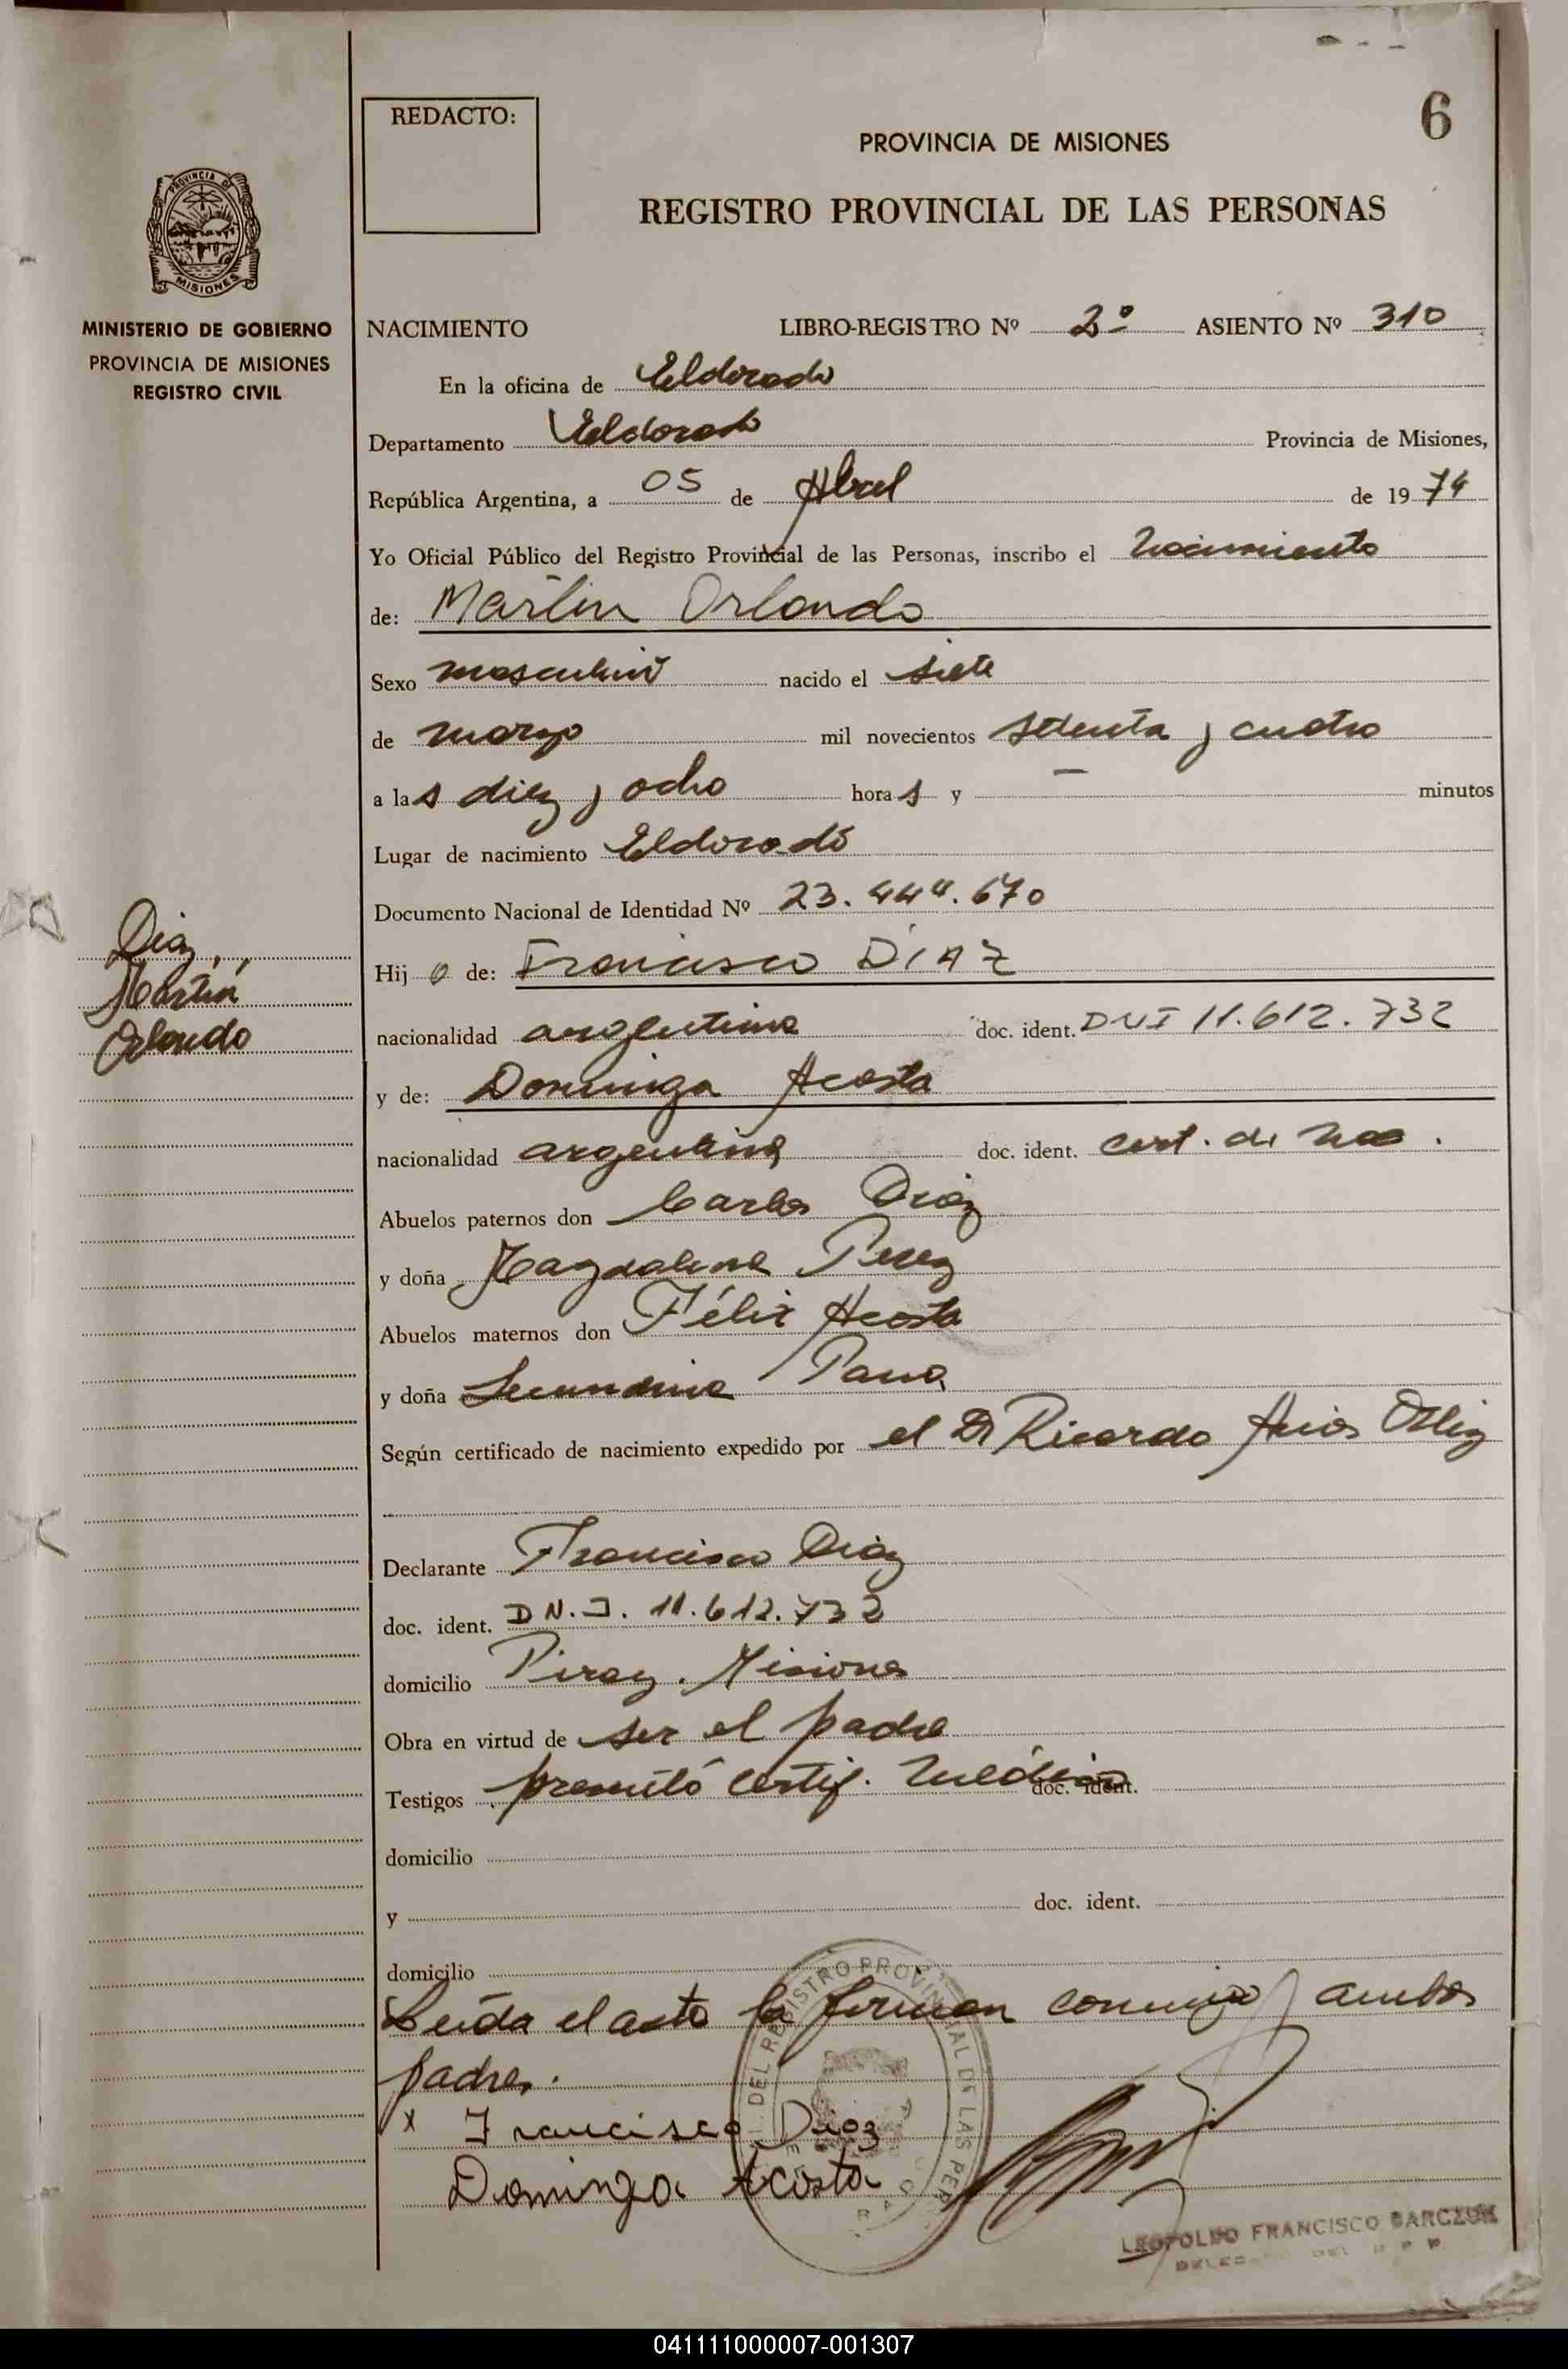 6
REDACTO:
PROVINCIA DE MISIONES
REGISTRO PROVINCIAL DE LAS PERSONAS
PROVINCIA DE
MISIONES
MINISTERIO DE GOBIERNO
PROVINCIA DE MISIONES
REGISTRO CIVIL
NACIMIENTO LIBRO-REGISTRO Nº 2º ASIENTO Nº 310
En la oficina de Eldorado
Departamento Eldorado Provincia de Misiones,
República Argentina, a 05 de Abril de 1974
Yo Oficial Público del Registro Provincial de las Personas, inscribo el Nacimiento
de: Martin Orlando
Sexo masculino nacido el siete
de marzo mil novecientos setenta y cuatro
a las diez y ocho horas y — minutos
Lugar de nacimiento Eldorado
Documento Nacional de Identidad Nº 23.444.670
Díaz,
Martín
Orlando
Hijo de: Francisco DIAZ
nacionalidad argentina doc. ident. DNI 11.612.732
y de: Dominga Acosta
nacionalidad argentina doc. ident. cert. de nac.
Abuelos paternos don Carlos Diaz
y doña Magdalena Perez
Abuelos maternos don Félix Acosta
y doña Secundina
Según certificado de nacimiento expedido por el Dr Ricardo
Declarante Francisco Diaz
doc. ident. DN.I. 11.612.732
domicilio Piray. Misiones
Obra en virtud de ser el padre
Testigos presentó certif. médico doc. ident.
domicilio
y doc. ident.
domicilio
Leída el acta la firman conmigo ambos
padres.
x Francisco Diaz
Dominga Acosta
DEL REGISTRO PROVINCIAL DE LAS PER
LEOPOLDO FRANCISCO BARCZUK
041111000007-001307